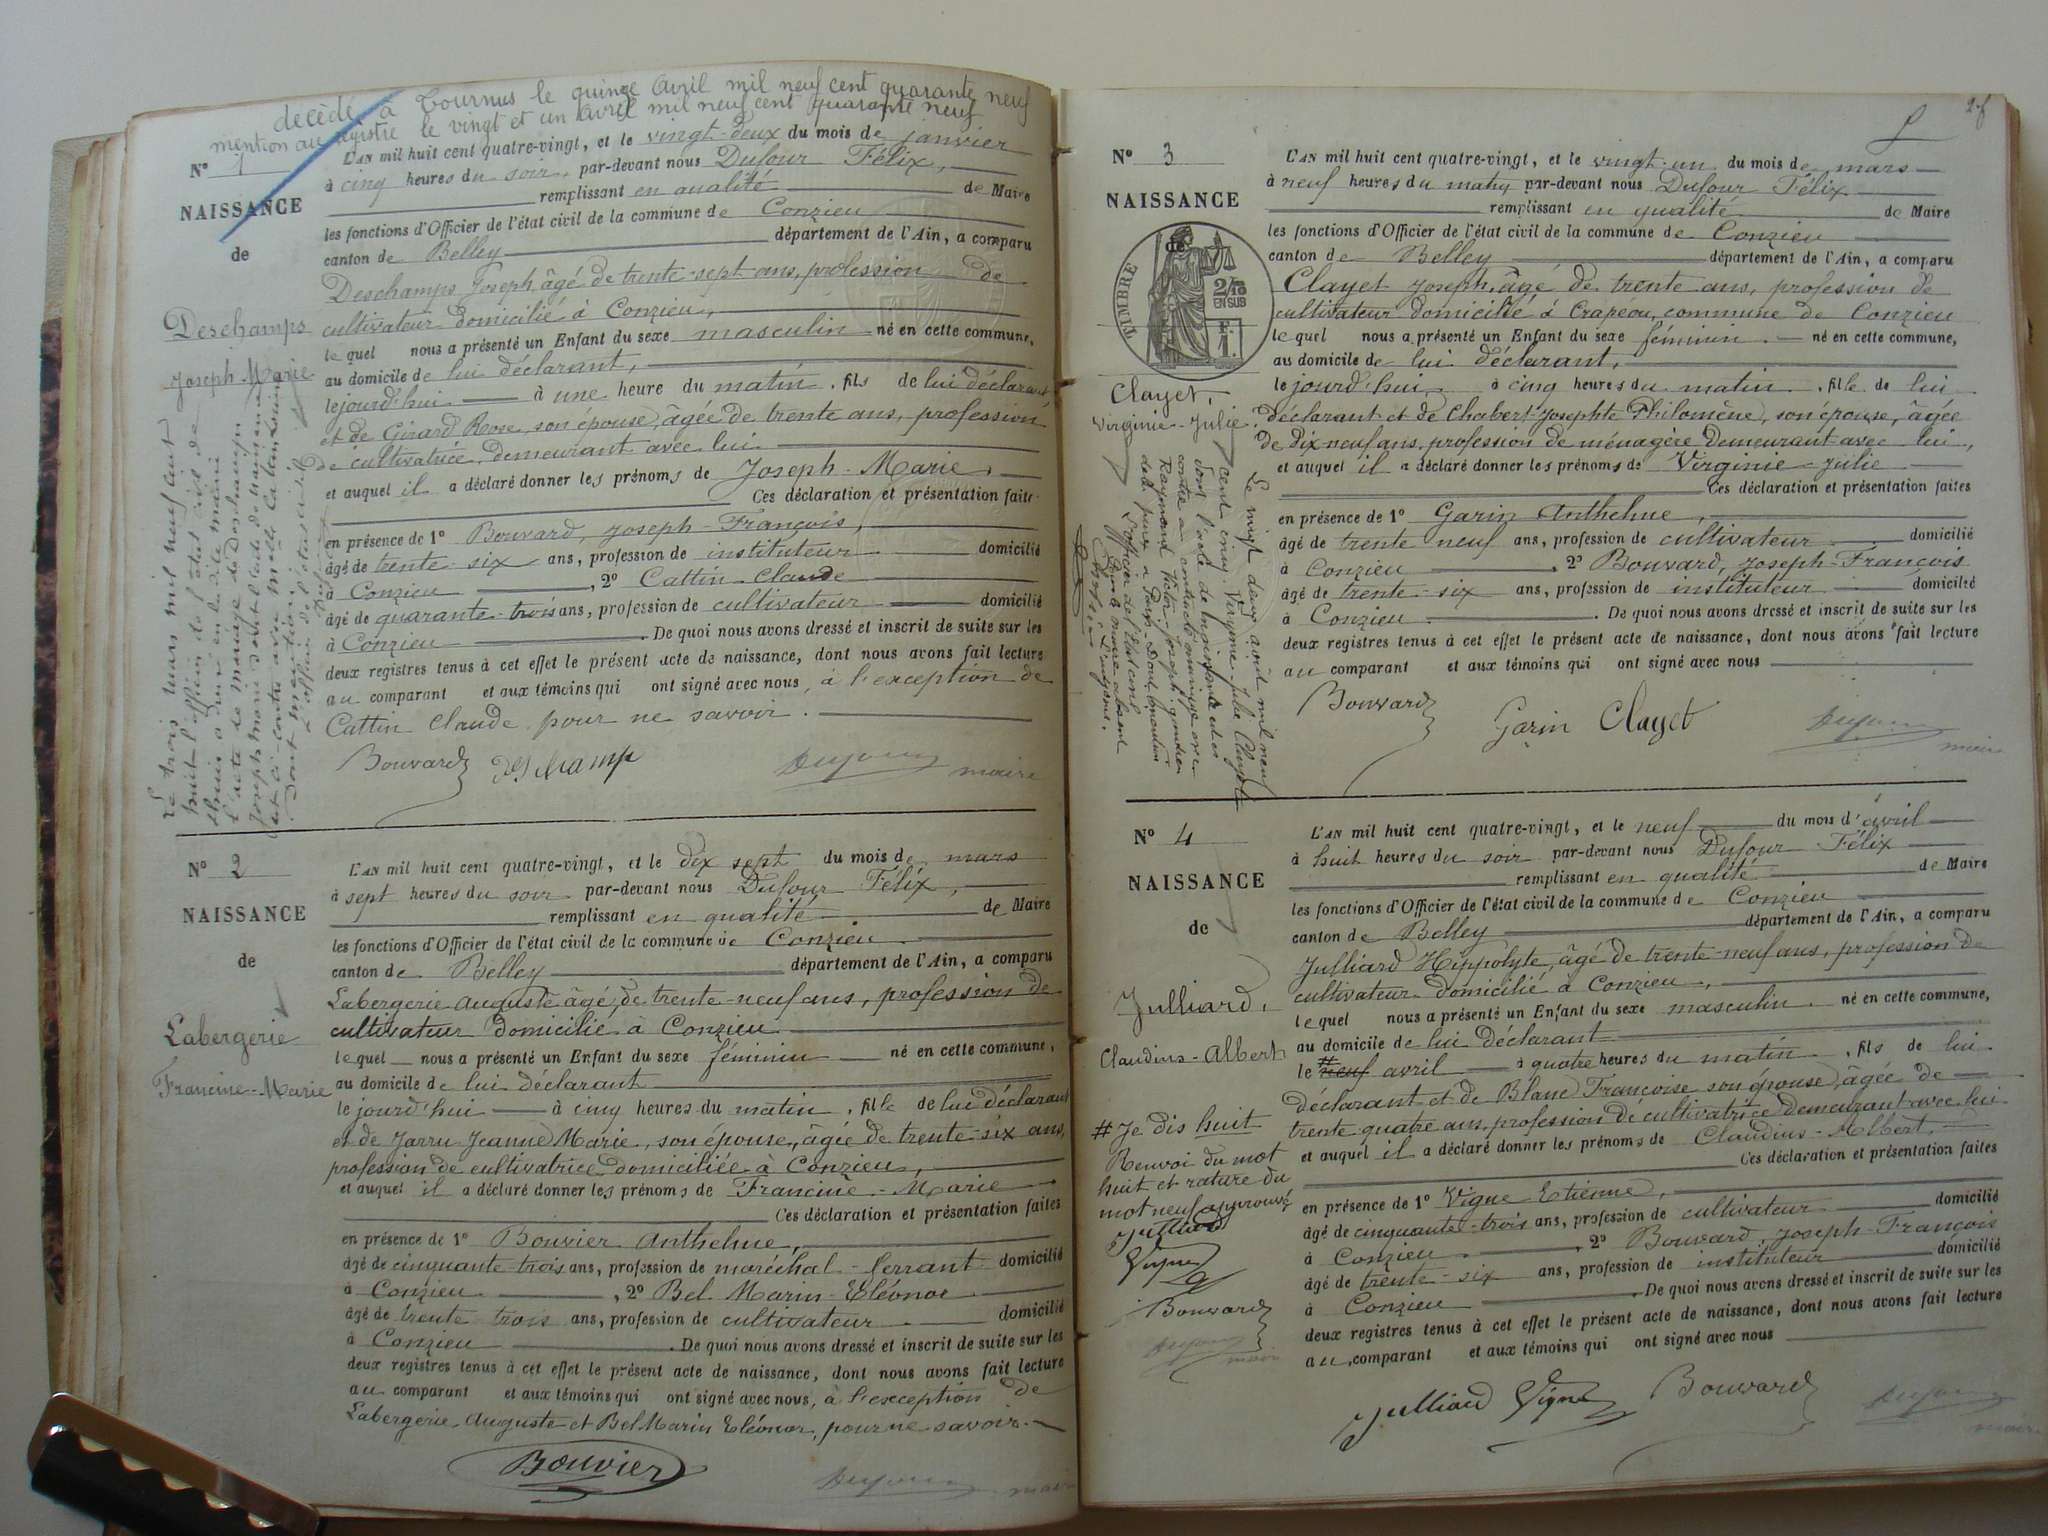 décédé à Tournus le quinze Avril mil neuf cent quarante neuf
mention au registre le vingt et un Avril mil neuf cent quarante neuf
N° 1
NAISSANCE
de
Deschamps
Joseph-Marie
L'AN mil huit cent quatre-vingt, et le vingt-deux du mois de janvier
à cinq heures du soir, par-devant nous Dufour Félix,
remplissant en qualité de Maire
les fonctions d'Officier de l'état civil de la commune de Conzieu
canton de Belley département de l'Ain, a comparu
Deschamps Joseph, âgé de trente-sept ans, profession de
cultivateur domicilié à Conzieu,
lequel nous a présenté un Enfant du sexe masculin né en cette commune,
au domicile de lui déclarant,
lejourd'hui à une heure du matin, fils de lui déclarant
et de Girard Rose, son épouse, âgée de trente ans, profession
de cultivatrice, demeurant avec lui
et auquel il a déclaré donner les prénoms de Joseph-Marie.
Ces déclaration et présentation faites
en présence de 1° Bouvard, Joseph-François,
âgé de trente-six ans, profession de instituteur domicilié
à Conzieu, 2° Cattin Claude
âgé de quarante-trois ans, profession de cultivateur domicilié
à Conzieu. De quoi nous avons dressé et inscrit de suite sur les
deux registres tenus à cet effet le présent acte de naissance, dont nous avons fait lecture
au comparant et aux témoins qui ont signé avec nous, à l'exception de
Cattin Claude pour ne savoir.
Bouvard Deschamp Dufour maire
Le trois mars mil neuf cent
huit l'officier de l'état civil de
l'acte de mariage de Deschamps
Joseph Marie
dont mention
L'officier de l'état civil
Dufour
N° 2
NAISSANCE
de
Labergerie
Francine-Marie
L'AN mil huit cent quatre-vingt, et le dix sept du mois de mars
à sept heures du soir par-devant nous Dufour Félix,
remplissant en qualité de Maire
les fonctions d'Officier de l'état civil de la commune de Conzieu
canton de Belley département de l'Ain, a comparu
Labergerie Auguste âgé de trente-neuf ans, profession de
cultivateur domicilié à Conzieu
lequel nous a présenté un Enfant du sexe féminin né en cette commune,
au domicile de lui déclarant
lejourd'hui à cinq heures du matin, fille de lui déclarant
et de Jarru Jeanne Marie, son épouse, âgée de trente-six ans,
profession de cultivatrice, domiciliée à Conzieu,
et auquel il a déclaré donner les prénoms de Francine-Marie
Ces déclaration et présentation faites
en présence de 1° Bouvier Anthelme,
âgé de cinquante-trois ans, profession de maréchal-ferrant domicilié
à Conzieu, 2° Bel Marin-Eléonor
âgé de trente trois ans, profession de cultivateur domicilié
à Conzieu. De quoi nous avons dressé et inscrit de suite sur les
deux registres tenus à cet effet le présent acte de naissance, dont nous avons fait lecture
au comparant et aux témoins qui ont signé avec nous, à l'exception de
Labergerie Auguste et Bel Marin Eléonor, pour ne savoir.
Bouvier Dufour maire
28
N° 3
NAISSANCE
de
TIMBRE
2/10
EN SUB
F.
1.
Clayet,
Virginie-Julie
L'AN mil huit cent quatre-vingt, et le vingt-un du mois de mars
à neuf heures du matin par-devant nous Dufour Félix
remplissant en qualité de Maire
les fonctions d'Officier de l'état civil de la commune de Conzieu
canton de Belley département de l'Ain, a comparu
Clayet Joseph, âgé de trente ans, profession de
cultivateur domicilié à Crapéou, commune de Conzieu
lequel nous a présenté un Enfant du sexe féminin. né en cette commune,
au domicile de lui déclarant,
lejourd'hui à cinq heures du matin, fille de lui
déclarant et de Chabert Josephte Philomène, son épouse, âgée
de dix neuf ans, profession de ménagère demeurant avec lui,
et auquel il a déclaré donner les prénoms de Virginie-Julie
Ces déclaration et présentation faites
en présence de 1° Garin Anthelme,
âgé de trente neuf ans, profession de cultivateur domicilié
à Conzieu, 2° Bouvard, Joseph-François
âgé de trente-six ans, profession de instituteur domicilié
à Conzieu. De quoi nous avons dressé et inscrit de suite sur les
deux registres tenus à cet effet le présent acte de naissance, dont nous avons fait lecture
au comparant et aux témoins qui ont signé avec nous
Bouvard Garin Clayet Dufour maire
Le vingt deux août mil neuf
cent cinq Virginie-Julie Clayet
dont l'acte de naissance est ci-
contre a contracté mariage avec
L'officier de l'état civil
N° 4
NAISSANCE
de
Julliard,
Claudius-Albert
L'AN mil huit cent quatre-vingt, et le neuf du mois d'avril
à huit heures du soir par-devant nous Dufour Félix
remplissant en qualité de Maire
les fonctions d'Officier de l'état civil de la commune de Conzieu
canton de Belley département de l'Ain, a comparu
Julliard Hippolyte, âgé de trente-neuf ans, profession de
cultivateur domicilié à Conzieu,
lequel nous a présenté un Enfant du sexe masculin. né en cette commune,
au domicile de lui déclarant
le # neuf avril à quatre heures du matin, fils de lui
déclarant et de Blanc Françoise son épouse, âgée de
trente quatre ans, profession de cultivatrice demeurant avec lui
et auquel il a déclaré donner les prénoms de Claudius-Albert.
Ces déclaration et présentation faites
en présence de 1° Vigne Etienne,
âgé de cinquante-trois ans, profession de cultivateur domicilié
à Conzieu, 2° Bouvard, Joseph-François
âgé de trente-six ans, profession de instituteur domicilié
à Conzieu. De quoi nous avons dressé et inscrit de suite sur les
deux registres tenus à cet effet le présent acte de naissance, dont nous avons fait lecture
au comparant et aux témoins qui ont signé avec nous
Julliard Vigne Bouvard Dufour maire
# Je dis huit
Renvoi du mot
huit et rature du
mot neuf approuvés
Julliard
Vigne
Bouvard
Dufour
maire